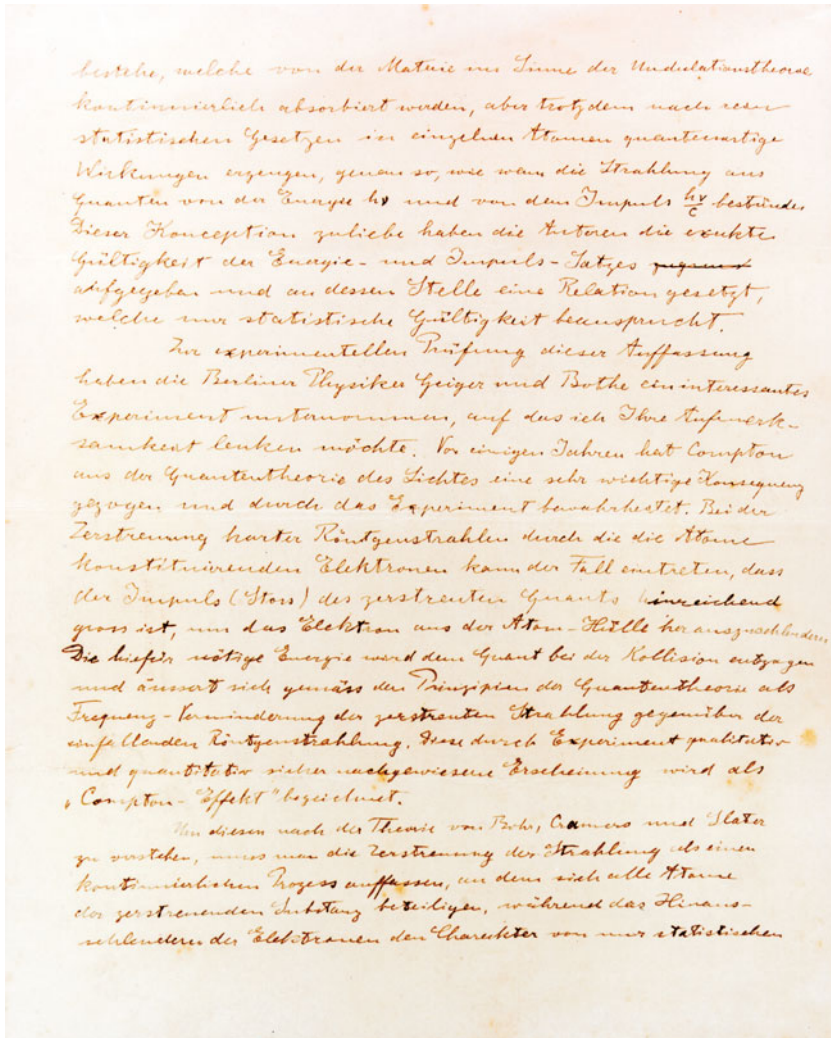 bestehe, welche von der Materie im Sinne der Undulationstheorie
kontinuierlich absorbiert werden, aber trotzdem nach rein
statistischen Gesetzen in einzelnen Atomen quantenartige
Wirkungen erzeugen, genau so, wie wenn die Strahlung aus
Quanten von der Energie hν und von dem Impuls hν/c bestünde.
Dieser Konception zuliebe haben die Autoren die exakte
Gültigkeit des Energie- und Impuls-Satzes
aufgegeben und an dessen Stelle eine Relation gesetzt,
welche nur statistische Gültigkeit beansprucht.
Zur experimentellen Prüfung dieser Auffassung
haben die Berliner Physiker Geiger und Bothe ein interessantes
Experiment unternommen, auf das ich Ihre Aufmerk-
samkeit lenken möchte. Vor einigen Jahren hat Compton
aus der Quantentheorie des Lichtes eine sehr wichtige Konsequenz
gezogen und durch das Experiment bewahrheitet. Bei der
Zerstreuung harter Röntgenstrahlen durch die die Atome
konstituierenden Elektronen kann der Fall eintreten, dass
der Impuls (Stoss) des zerstreuten Quants hinreichend
gross ist, um das Elektron aus der Atom-Hülle herauszuschleudern.
Die hiefür nötige Energie wird dem Quant bei der Kollision entzogen
und äussert sich gemäss den Prinzipien der Quantentheorie als
Frequenz-Verminderung der zerstreuten Strahlung gegenüber der
einfallenden Röntgenstrahlung. Diese durch Experiment qualitativ
und quantitativ sicher nachgewiesene Erscheinung wird als
„Compton-Effekt" bezeichnet.
Um diesen nach der Theorie von Bohr, Cramers und Slater
zu verstehen, muss man die Zerstreuung der Strahlung als einen
kontinuierlichen Prozess auffassen, an dem sich alle Atome
der zerstreuenden Substanz beteiligen, während das Hinaus-
schleudern der Elektronen den Charakter von nur statistischen